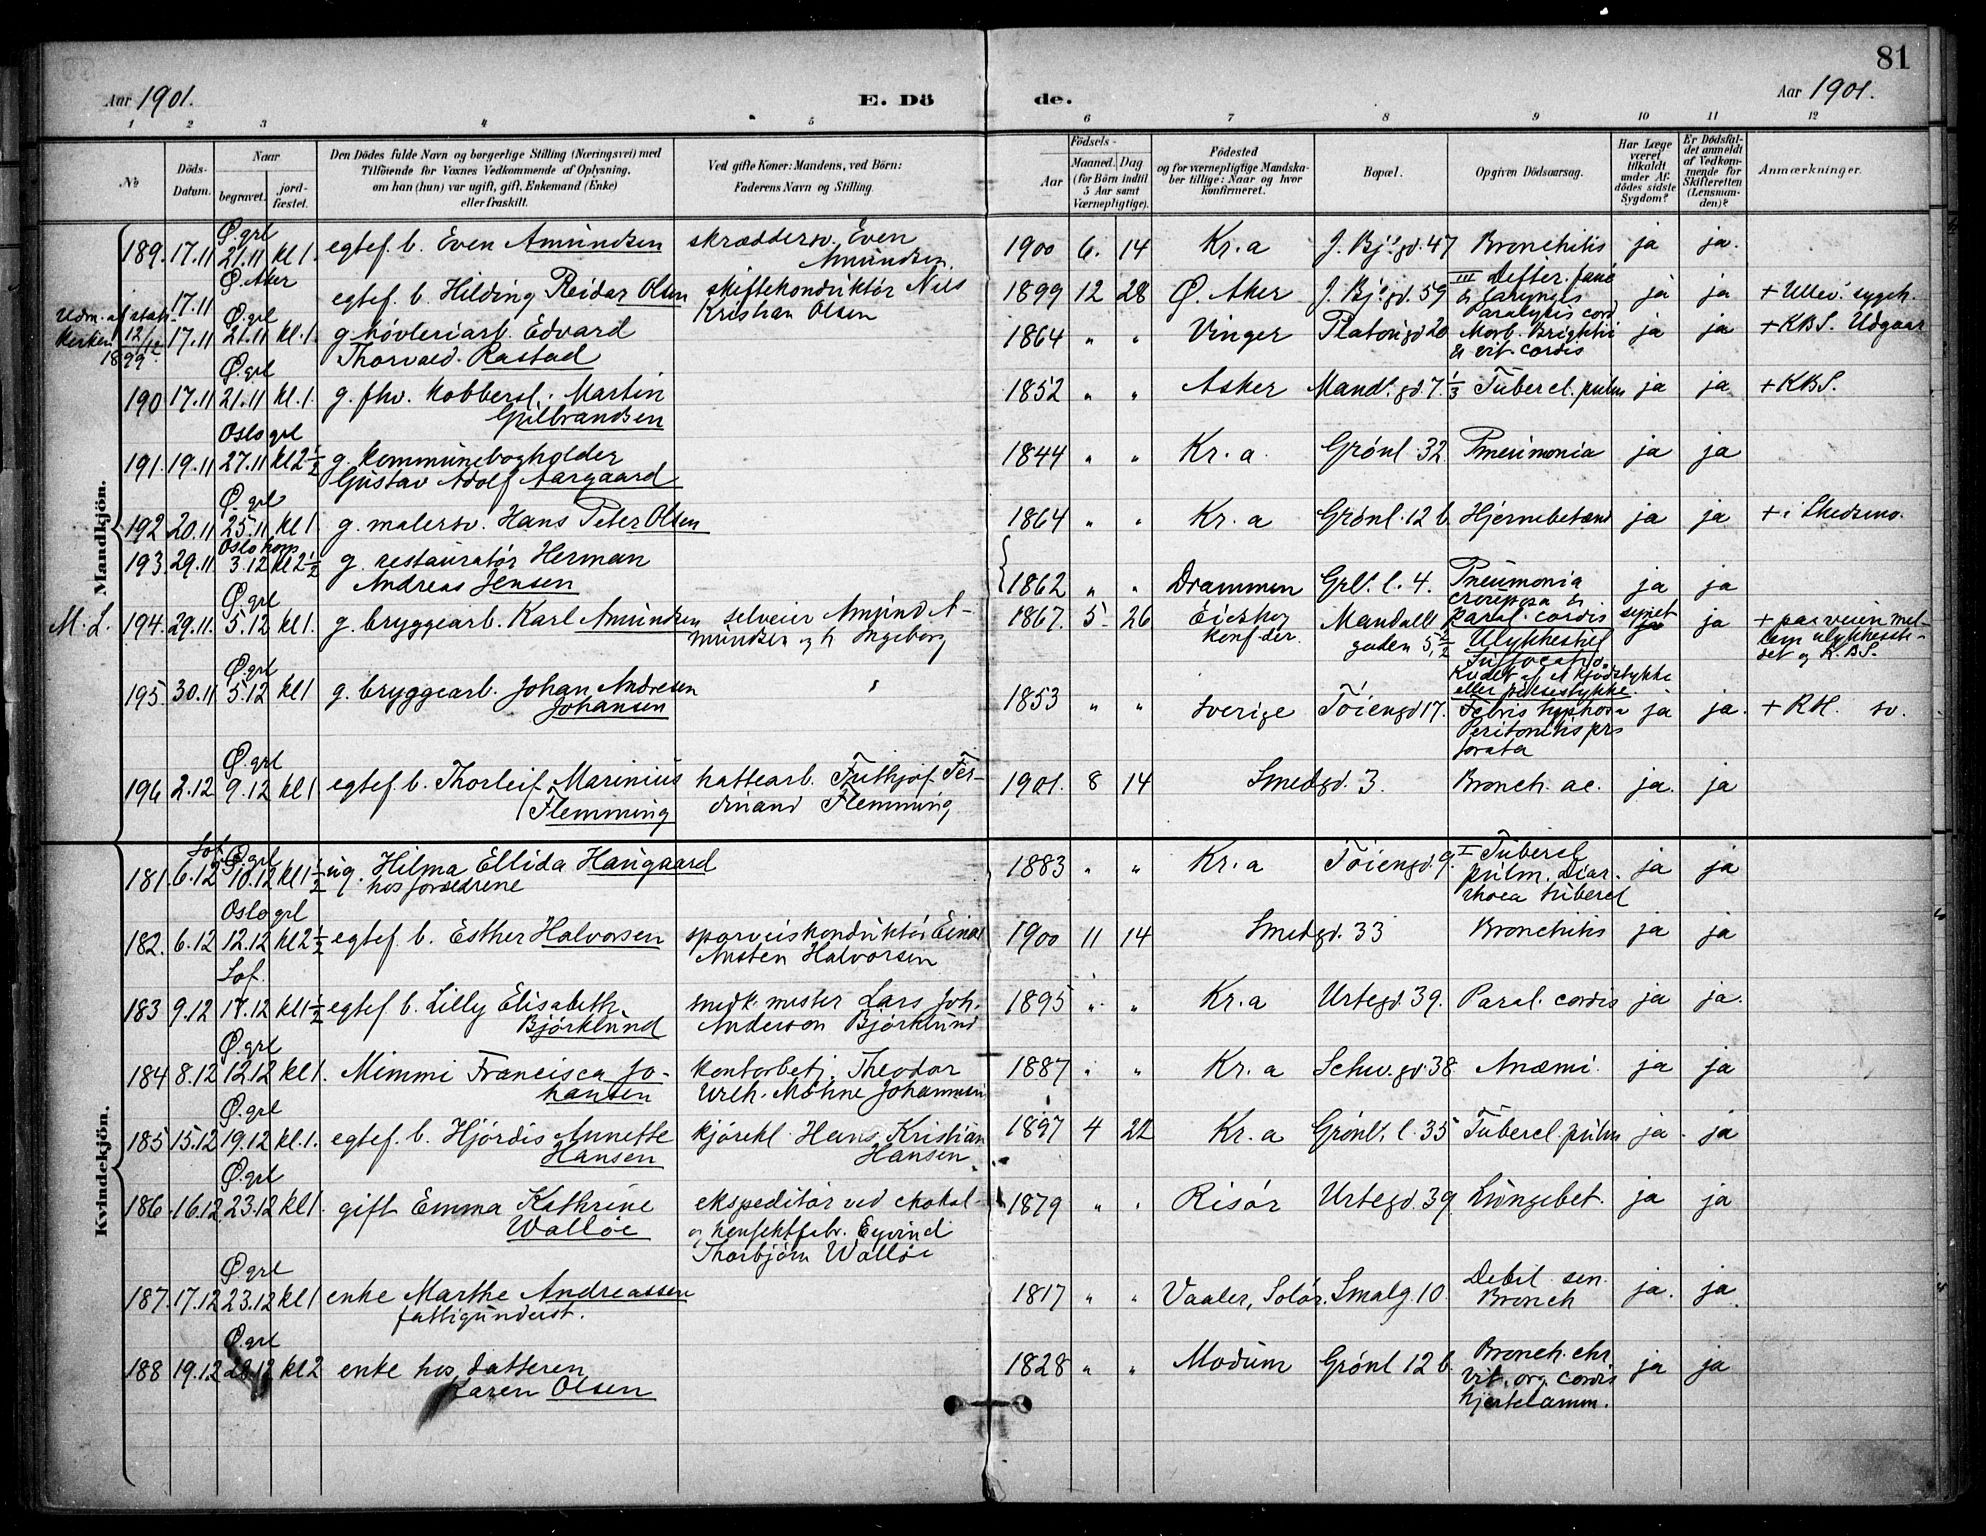 81
Aar 1901.
E. Dö
de.
Aar 1901.
1 2 3 4 5 6 7 8 9 10 11 12
No
Döds-Datum.
Naar
begravet.
jord-fæstet.
Den Dödes fulde Navn og borgerlige Stilling (Næringsvei) med
Tilföiende for Voxnes Vedkommende af Oplysning,
om han (hun) var ugift, gift, Enkemand (Enke)
eller fraskilt.
Ved gifte Koner: Mandens, ved Börn:
Faderens Navn og Stilling.
Födsels-
Aar
Maaned. Dag
(for Börn indtil
5 Aar samt
Værnepligtige).
Födested
og for værnepligtige Mandska-
ber tillige: Naar og hvor
konfirmeret.
Bopæl.
Opgiven Dödsaarsag.
Har Læge
været
tilkaldt
under Af-
dödes sidste
Sygdom?
Er Dödsfal-
det anmeldt
af Vedkom-
mende for
Skifteretten
(Lensman-
den)?
Anmærkninger.
Mandkjön.
189. 17.11 Ø.grl 21.11 kl 1. egtef. b. Even Amundsen skræddersv. Even Amundsen. 1900 6. 14 Kr.a J. Bj. gd. 47 Bronchitis ja ja.
17.11 Ø. Aker egtef. b. Hilding Reidar Olsen skiftekonduktör Nils Kristian Olsen 1899 12 28 Ø. Aker J. Bj. gd. 59 III Defter. fauc & laryngis Paralysis cord ja ja + Ullev. sygeh.
Udm. af stats-
kirken 12/12
1899
17.11 Ø.grl 21.11 kl.1. g. høvleriarb. Edvard Thorvald Rastad 1864 " " Vinger Platousgd 20 Morb. Brightii & vit. cordis ja ja + KBS. Udgaar
190 17.11 Ø.grl 21.11 kl.1. g. fhv. kobbersl. Martin Gulbrandsen 1852 " " Asker Mandl. gd. 7. 1/3 Tubercl. pulm ja ja + KBS.
191. 19.11 Oslo grl 27.11 kl 2 1/2 g. kommunebogholder Gustav Adolf Aargaard 1844 " " Kr. a. Grönl. 32 Pneumonia ja ja
192 20.11 Ø. grl 25.11 kl 1. g. malersv. Hans Peter Olsen 1864 " " Kr. a Grønl. 12 b. Hjernebetænd ja ja + i Skedsmo.
193. 29.11 Oslo hosp 3.12 kl 2 1/2 g. restauratör Herman Andreas Jensen 1862 " " Drammen Grl. l. 4. Pneumonia crouposa & paral. cordis ja ja
M. L. 194. 29.11. Ø.grl 5.12 kl 1. g. bryggearb. Karl Amundsen selveier Amund Amundsen og h Ingeborg 1867. 5 26 Eidskog konf der. Mandall gaden 5, 1/2 Ulykkestilf Suffocatio. Kvalt af et Kjödstykke eller pølsestykke. synet ja + paa veien mellem ulykkesstedet og K.B.S.
195. 30.11 Ø.grl 5.12 kl 1 g. bryggearb. Johan Andresen Johansen 1853 " " Sverige Töiengd 17. Febris typhosa Peritonitis perforata ja ja. + RH. sv.
196 2.12 Ø.grl 9.12 kl 1 egtef. b. Thorleif Marinius Flemming hattearb. Frithjof Ferdinand Flemming 1901. 8 14 Smedgd. 3. Bronch. ac. ja. ja
Kvindekjön.
181. 6.12 Sof. Ø.grl 10.12 kl 1 1/2 ug. Hilma Ellida Haugaard hos forældrene 1883 " " Kr. a Töiengd. 9. I Tubercl pulm. Diarrhoea tubercl ja ja
182. 6.12 Oslo grl 12.12 kl 2 1/2 egtef. b. Esther Halvorsen sporveiskonduktör Einar Austen Halvorsen 1900 11 14 Smedgd. 33 Bronchitis ja ja
183 9.12 Sof. 17.12 kl 1 1/2 egtef. b. Lilly Elisabeth Björklund snedk. mester Lars Joh. Anderson Björklund 1895 " " Kr. a Urtegd. 39. Paral. cordis ja ja.
184 8.12 Ø.grl 12.12 kl 1. Mimmi Francisca Johansen kontorbetj. Theodor Wilh. Möhne Johannsen 1887 " " Kr. a Schw. gd. 38 Anæmi. ja ja
185 15.12 Ø.grl 19.12 kl.1. egtef. b. Hjördis Annette Hansen kjörekl Hans Kristian Hansen. 1897 4 22 Kr. a Grönl. l. 35 Tubercl. pulm ja. ja
186. 16.12. Ø.grl 23.12 kl 1. gift Emma Kathrine Walløe ekspeditör ved chokol og konfektfabr. Eyvind Thorbjörn Walløe 1879 " " Risör Urtegd. 39. Lungebet. ja ja
187. 17.12 Ø.grl 23.12 kl 1 enke Marthe Andreassen fattigunderst. 1817 " " Vaaler, Solör. Smalg. 10. Debil. sen. Bronch ja. ja
188 19.12 Ø.grl 28.12 kl 2 enke hos datteren Karen Olsen 1828 " " Modum Grönl 12 b. Bronch. chr. vit. org. cordis hjertelamm. ja ja